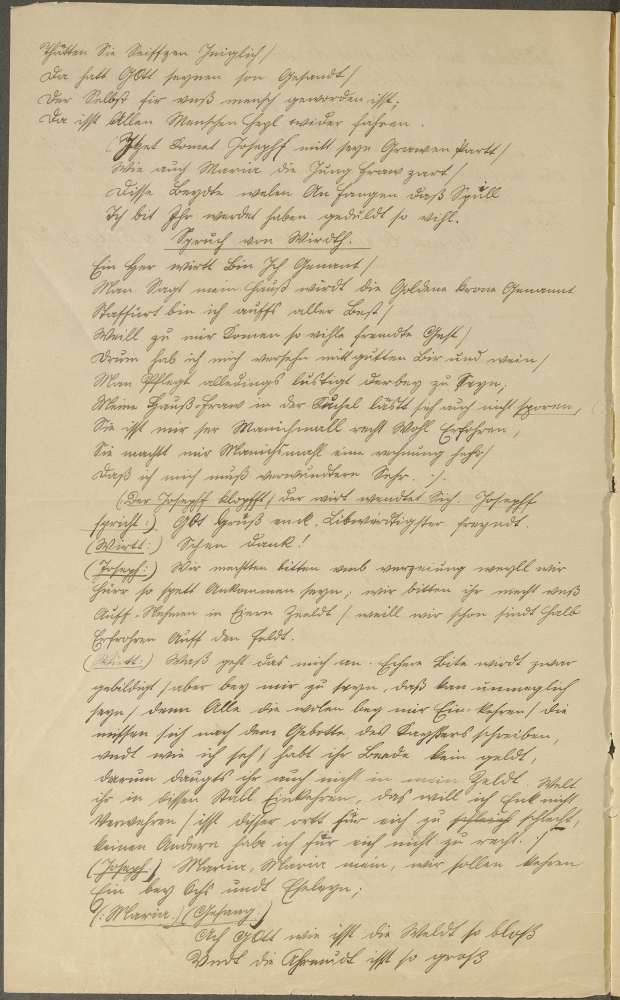 Thätten Sie Seiffzen Jniglich/
Da hatt GOtt seynen son Gesandt/
Der Selbst fir unß mensch geworden ißt;
Da ißt Allen Menschen heyl wider fahren.
(Jtzet komet Josephf mitt seyn Grawen Partt/
Wie auch Maria die Jung fraw zart/
Disse Beydte welen An fangen daß Spüll
Jch bit Jhr werdet haben geduldt so vihl.
Spruch von Wirdth.
Ein Her wirtt Bin Jch Genant/
Man Sagt mein hauß wirdt die Goldene krone Genannt
Staffiert bin ich auffs aller Best/
Weill zu mir komen so vihle fremdte Gest/
Drum hab ich mich versehn mitt gutten Bir und wein/
Man Pflegt alledings lustigt darbey zu Seyn;
Meine Hauß-fraw in der Kuchel lästt sich auch nicht sporen,
Sie ißt mir ser Manichmall recht Wohl Erfahren,
Sie machtt mir Manichsmahl eine rechnung hehr/
Daß ich mich muß verwundtern Sehr. :/:
(Der Josephf klopfft/ der wirt wendtet Sich. Josephf
spricht:) GOt Gruß euch, Libwirdtigster freyndt.
(Wirtt:) Schen dank!
(Joseph:) Wir mechtten bitten umb verzeiung weyll wir
hirr so spett Ankommen seyn; wir bitten ihr mecht unß
Auff-Nehmen in Eiern Zeeldt/ weill wir schon sindt halb
Erfrohren Auff den feldt.
(Wirtt:) Waß geht das mich an. Eyhere Bite wirdt zwar
gebildigt/ aber bey mir zu seyn, daß kan unmeglich
seyn/ denn Alle die wolen bey mir Ein-kehren/ die
müssen sich nach dem Gebotte des Kayssers schreiben,
undt wie ich seh/ habt ihr Beede kein geldt,
darum daugts ihr auch nicht in mein Zeldt. Welt
ihr in dissen Stall Einkehren, das will ich Euch nicht
Verwehren/ ißt disser ortt für eich zu schleich schlecht,
keinen Andern habe ich für eich nicht zu recht. :/
(Joseph) Maria, Maria mein, wir sollen kehren
Ein bey Ochs undt Eseleyn;
(:Maria.)(Gesang.)
Ach GOtt wie ißt die Weldt so bloß
Undt die Ahrmudt ißt so groß